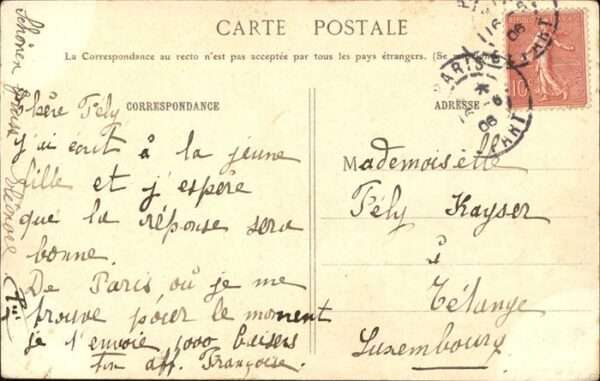 CARTE POSTALE
La Correspondance au recto n'est pas acceptée par tous les pays étrangers. (Se
CORRESPONDANCE
ADRESSE
Chère Fély
j'ai écrit à la jeune
fille et j'espère
que la réponse sera
bonne.
De Paris où je me
trouve pour le moment
je t'envoie 1000 baisers
Ton aff. Françoise.
Mademoiselle
Fély Kayser
à
Tétange
Luxembourg
Schönen
PARIS
16-6
06
DÉPART
10